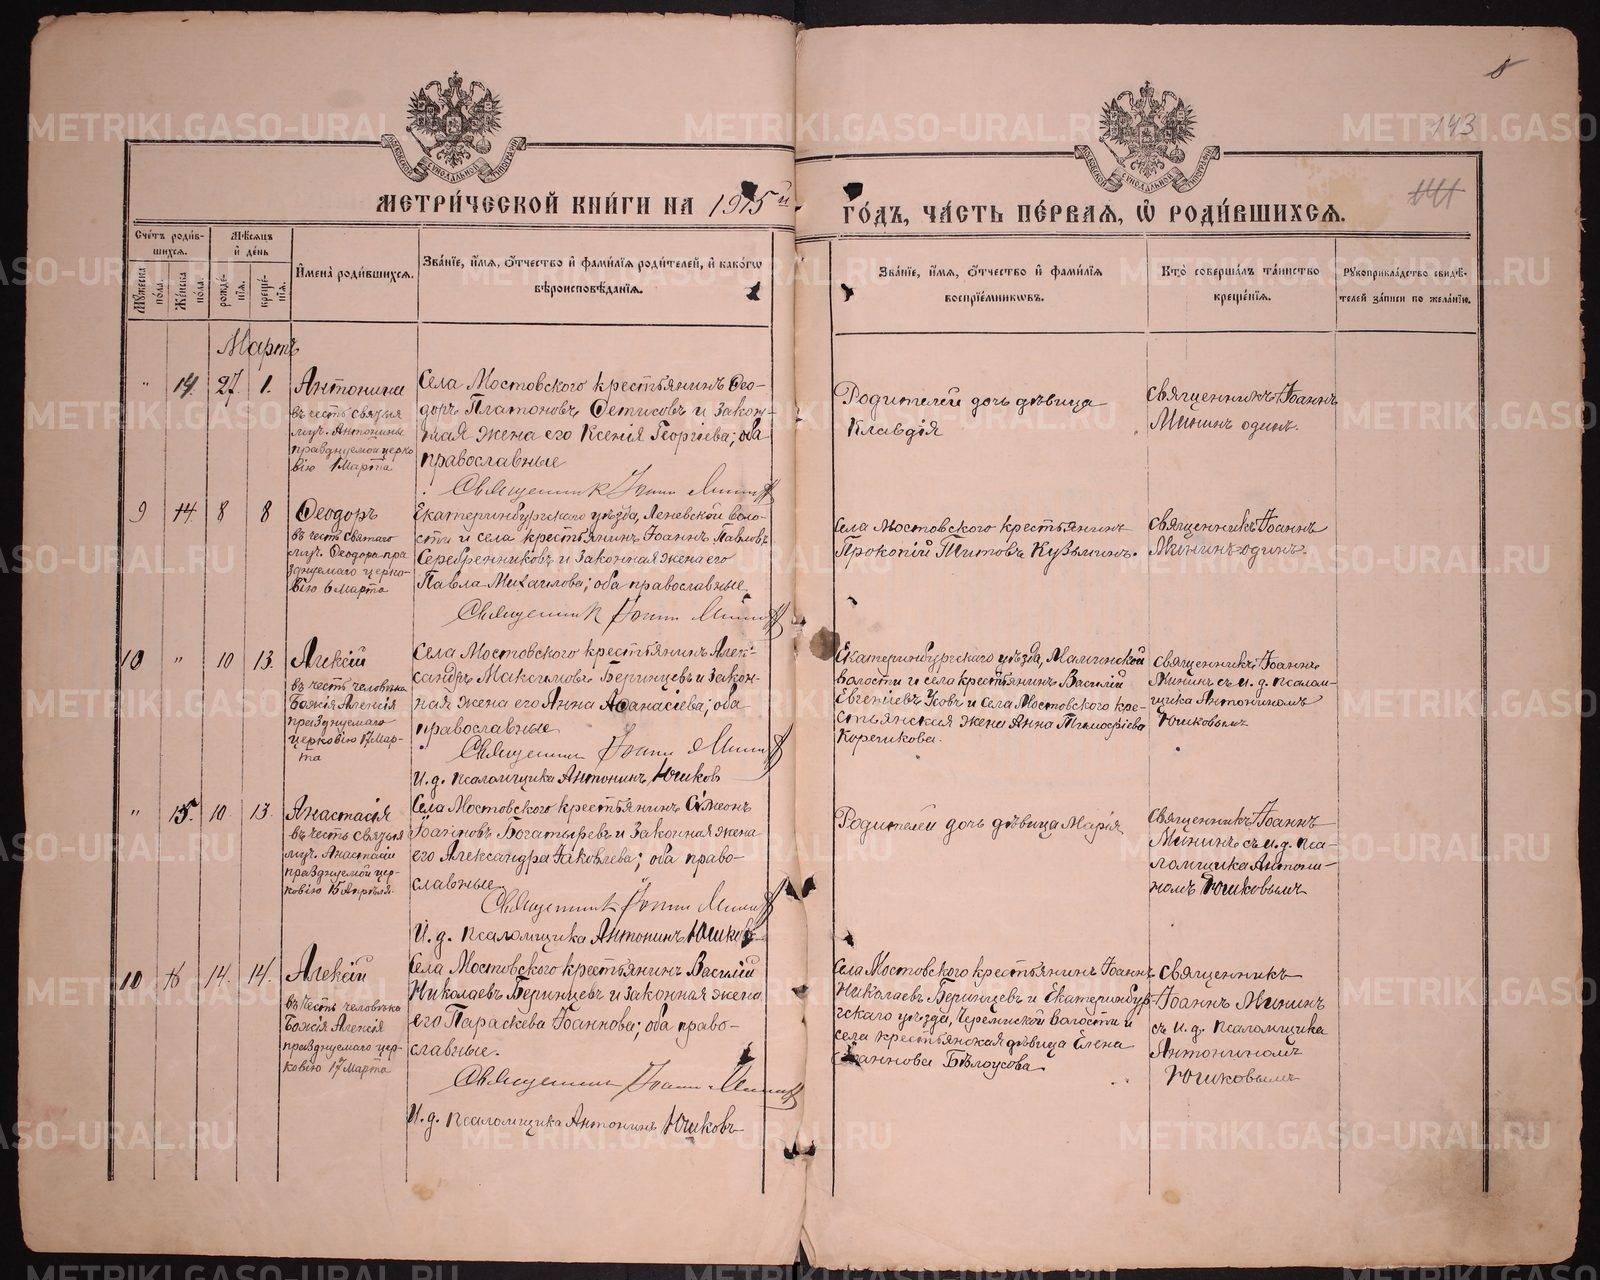 8
143
141
МЕТРИ́ЧЕСКОЙ КНИ́ГИ НА 1915й ГО́ДЪ, ЧА́СТЬ ПЕ́РВАѦ, Ѡ҆ РОДИ́ВШИХСѦ.
Счетъ роди́вшихсѧ.
Мѣсѧцъ и де́нь
Мужеска по́ла.
Же́нска по́ла.
рожде́нїѧ.
креще́нїѧ.
И҆мена̀ роди́вшихсѧ.
Зва́нїе, и҆́мѧ, ѻ҆́тчество и҆ фами́лїѧ роди́телей, и҆ како́гѡ
вѣроисповѣ́данїѧ.
Зва́нїе, и҆́мѧ, ѻ҆́тчество и҆ фами́лїѧ
воспрїе́мникѡвъ.
Кто̀ соверша́лъ та́инство
креще́нїѧ.
Рукоприкла́дство свидѣ́-
телей за́писи по жела́нїю.
Мартъ
" 14. 27. 1.
Антонина
въ честь святыя
муч. Антонины
празднуемой церко
вію 1 Марта
Села Мостовского крестьянинъ Ѳео-
доръ Платоновъ Ѳетисовъ и закон-
ная жена его Ксенія Георгіева; оба
православные
Священник Іоанн Минин
Родителей дочь дѣвица
Клавдія
Священникъ Іоаннъ
Мининъ один.
9 14 8 8
Ѳеодоръ
въ честь святаго
муч. Ѳеодора пра
зднуемаго церко-
вію 6 Марта
Екатеринбургского уѣзда, Леневской воло-
сти и села крестьянинъ Іоаннъ Павловъ
Серебренниковъ и законная жена его
Павла Михаилова; оба православные.
Священник Іоанн Минин
Села Мостовского крестьянинъ
Прокопій Титовъ Кузьминъ.
Священникъ Іоаннъ
Мининъ одинъ.
10 " 10 13.
Алексій
въ честь человѣка
Божія Алексія
празднуемаго
церковію 17 Мар-
та
Села Мостовского крестьянинъ Алек-
сандръ Максимовъ Беринцевъ и закон-
ная жена его Анна Аѳанасіева; оба
православные
Священник Іоанн Минин
И. д. псаломщика Антонинъ Юшков
Екатеринбургского уѣзда, Маминской
волости и села крестьянинъ Василій
Евгеніевъ Усовъ и Села Мостовского кре-
стьянская жена Анна Тимоѳіева
Корепикова.
Священникъ Іоаннъ
Мининъ съ и. д. псалом-
щика Антониномъ
Юшковымъ
" 15. 10. 13.
Анастасія
въ честь святыя
муч. Анастасіи
празднуемой цер-
ковію 15 Апрѣля.
Села Мостовского крестьянинъ Сѵмеонъ
Іоанновъ Богатыревъ и законная жена
его Александра Іаковлева; оба право-
славные.
Священник Іоанн Минин
И. д. псаломщика Антонинъ Юшковъ
Родителей дочь дѣвица Марія
Священникъ Іоаннъ
Мининъ съ и. д. пса-
ломщика Антони-
номъ Юшковымъ
10 16 14. 14.
Алексій
въ честь человѣка
Божія Алексія
празднуемаго цер-
ковію 17 Марта
Села Мостовского крестьянинъ Василій
Николаевъ Беринцевъ и законная жена
его Параскева Іоаннова; оба право-
славные.
Священник Іоанн Минин
И. д. псаломщика Антонинъ Юшковъ
Села Мостовского крестьянинъ Іоаннъ
Николаевъ Беринцевъ и Екатеринбур-
гскаго уѣзда, Черемисской волости и
села крестьянская дѣвица Елена
Іоаннова Бѣлоусова.
Священникъ
Іоаннъ Мининъ
съ и. д. псаломщика
Антониномъ
Юшковымъ
METRIKI.GASO-URAL.RU